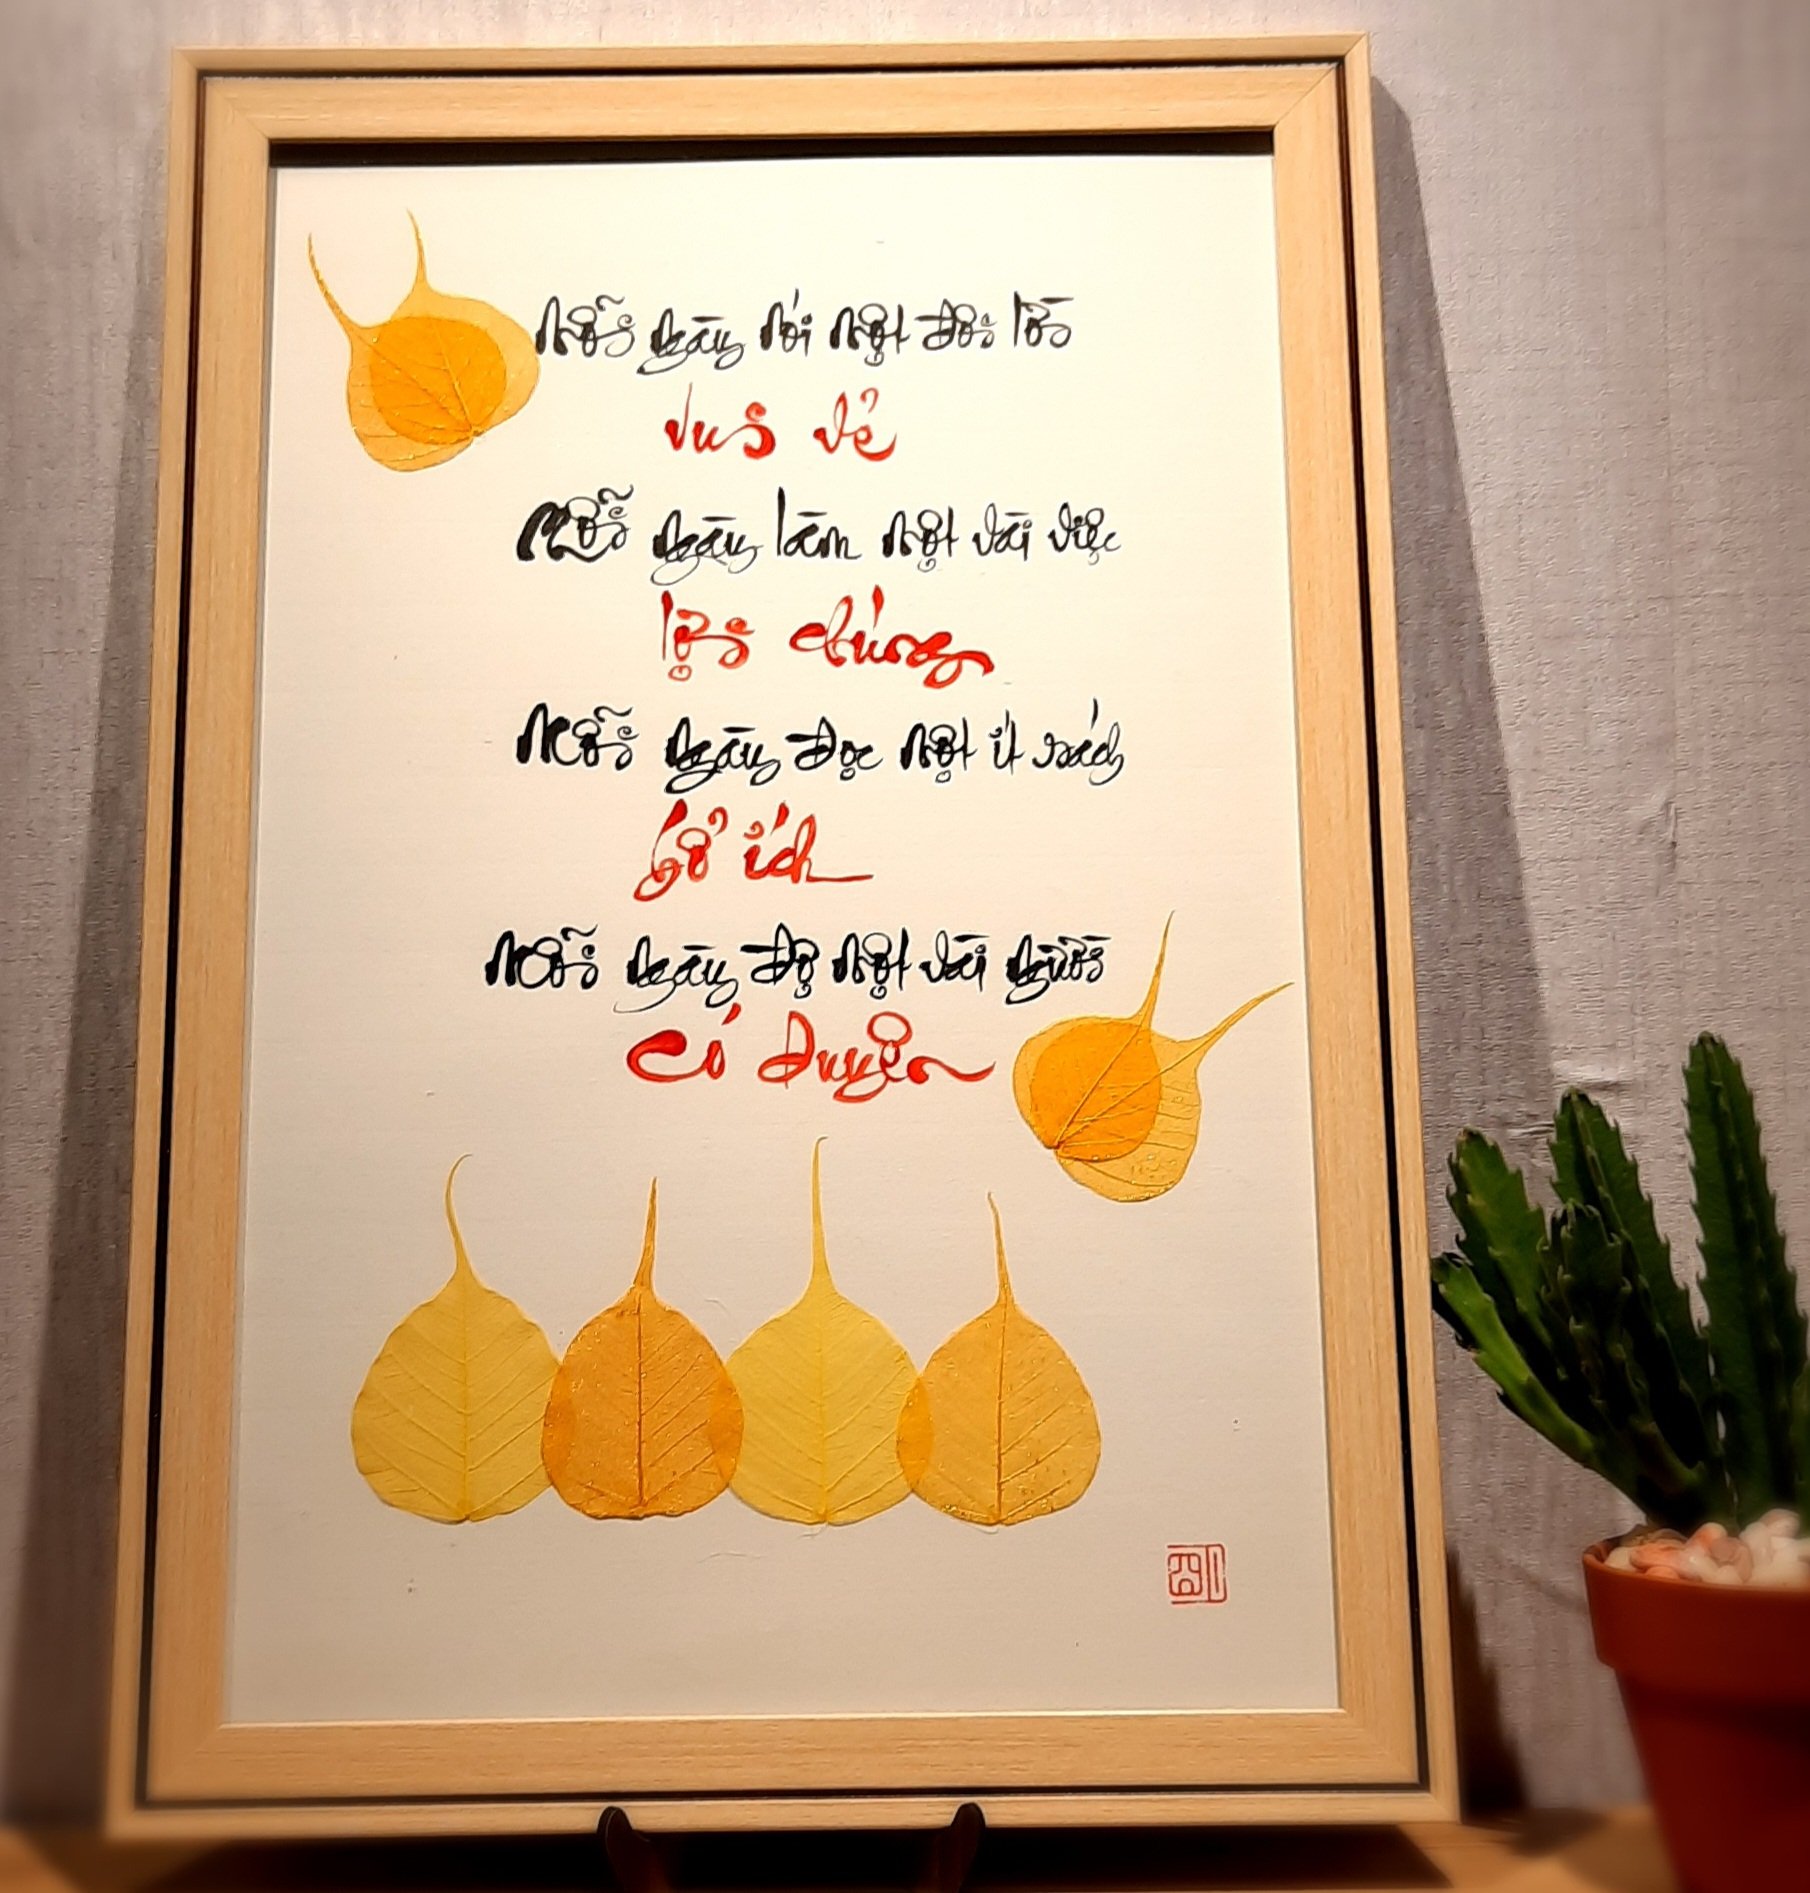 Mỗi ngày nói một đôi lời
vui vẻ
Mỗi ngày làm một vài việc
lợi chúng
Mỗi ngày đọc một ít sách
bổ ích
Mỗi ngày độ một vài người
có duyên